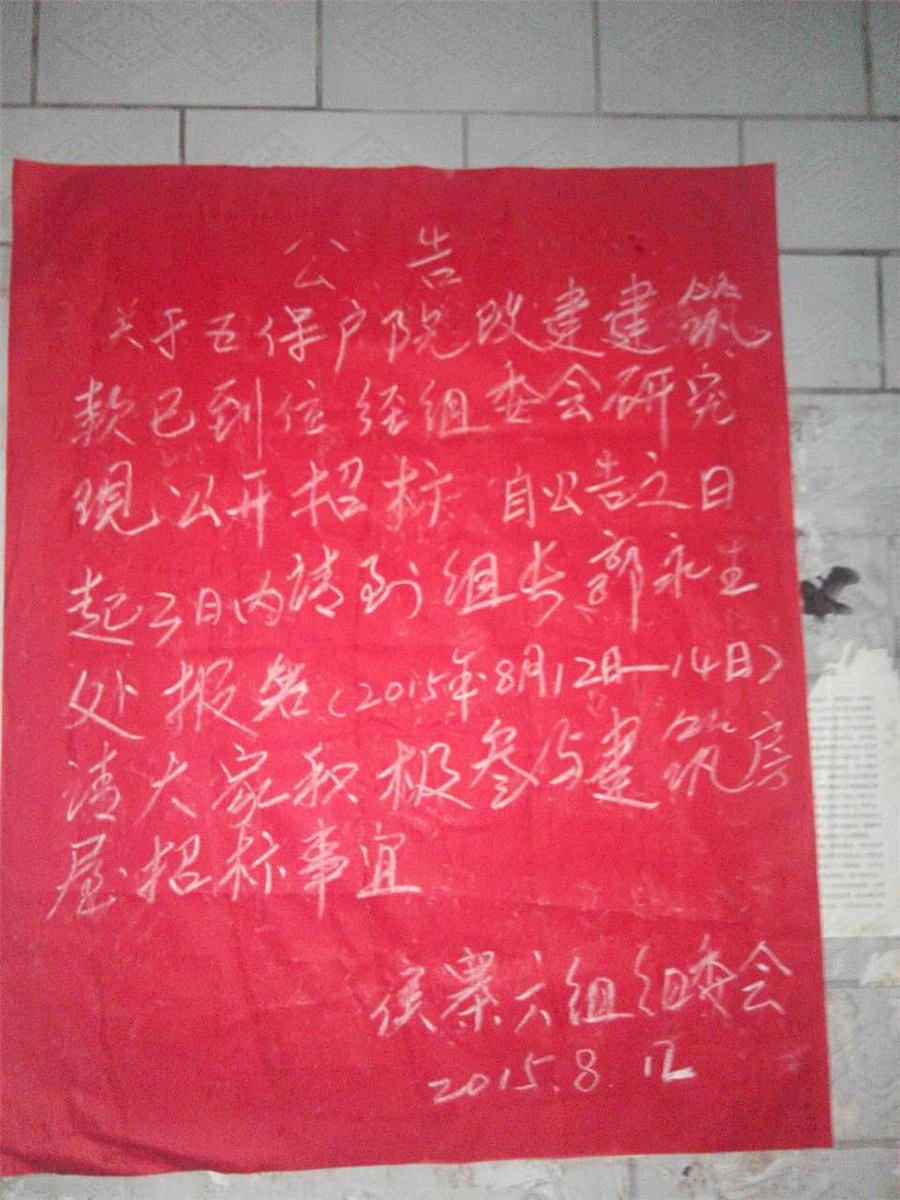 公告
关于五保户院改建建筑
款已到位经组委会研究
现公开招标 自公告之日
起三日内请到组长郭永生
处报名(2015年8月12日—14日)
请大家积极参与建筑房
屋招标事宜
侯寨六组组委会
2015.8.12